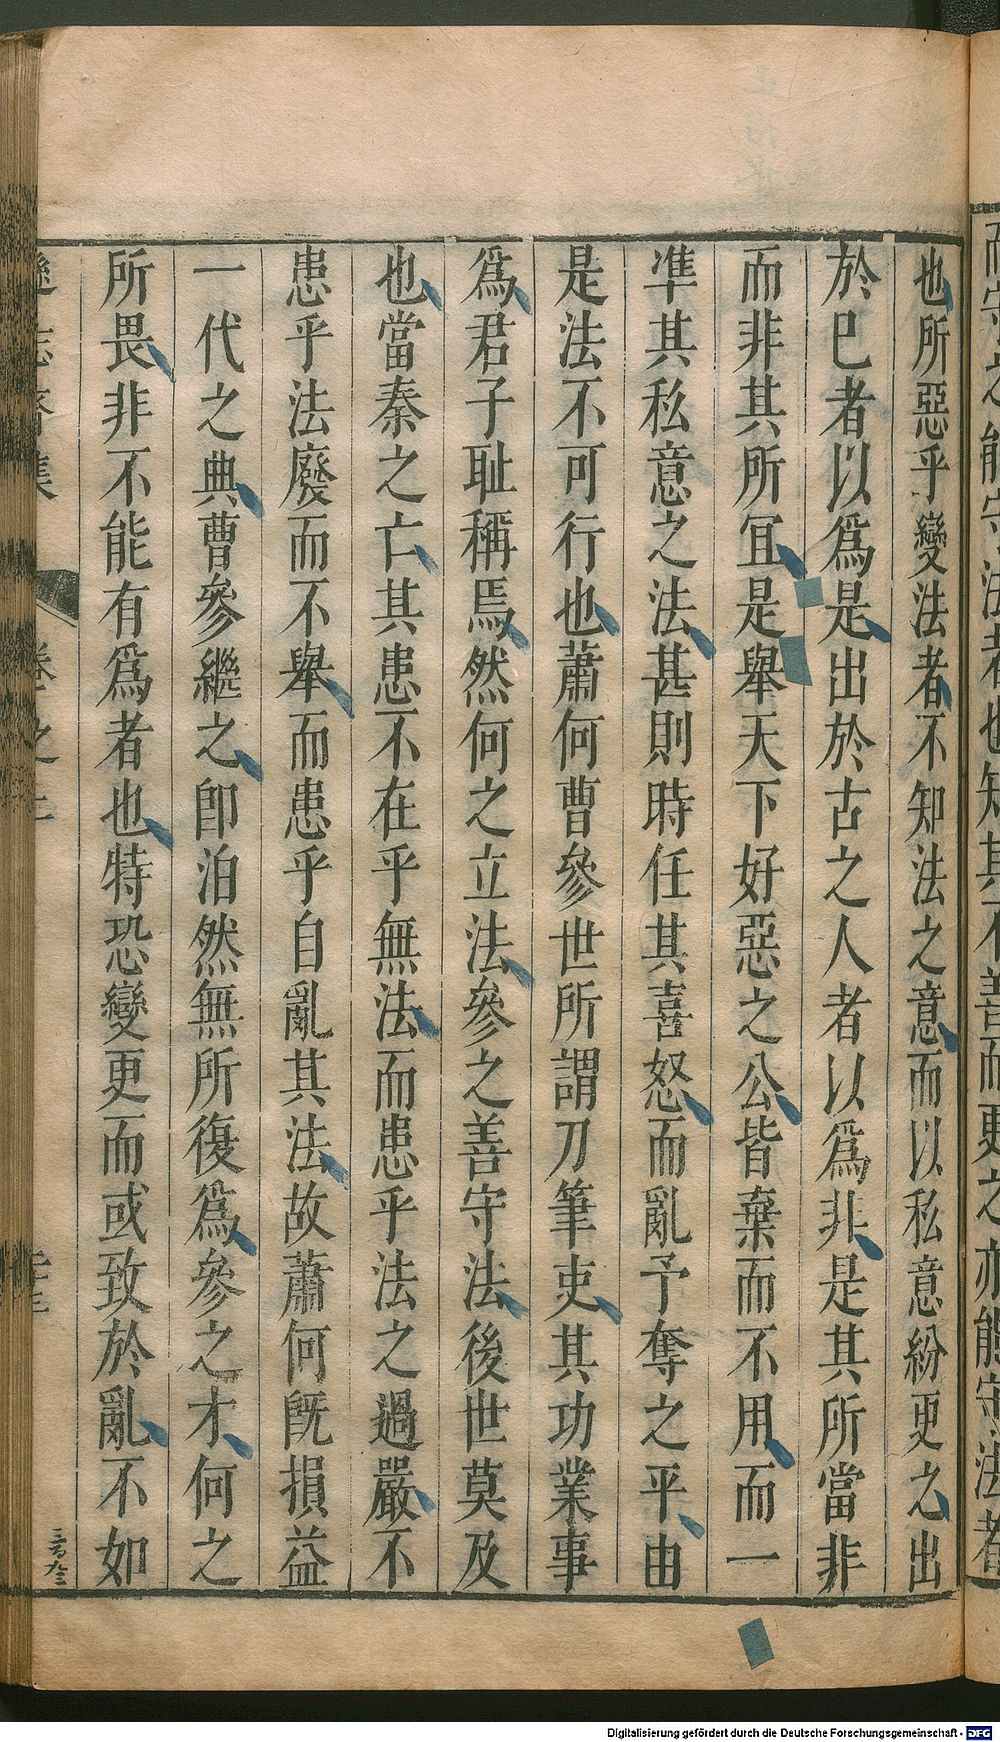 而守之能守法者也知其不善而更之亦能守法者
也所惡乎變法者不知法之意而以私意紛更之出
於巳者以爲是出於古之人者以爲非是其所當非
而非其所冝是舉天下好惡之公皆棄而不用而一
凖其私意之法甚則時任其喜怒而亂予奪之平由
是法不可行也蕭何曹參世所謂刀筆吏其功業事
爲君子耻稱焉然何之立法參之善守法後世莫及
也當秦之亡其患不在乎無法而患乎法之過嚴不
患乎法廢而不舉而患乎自亂其法故蕭何旣損益
一代之典曹參繼之卽泊然無所復爲參之才何之
所畏非不能有爲者也特恐變更而或致於亂不如
遜志齋集 卷之三
Digitalisierung gefördert durch die Deutsche Forschungsgemeinschaft - DFG